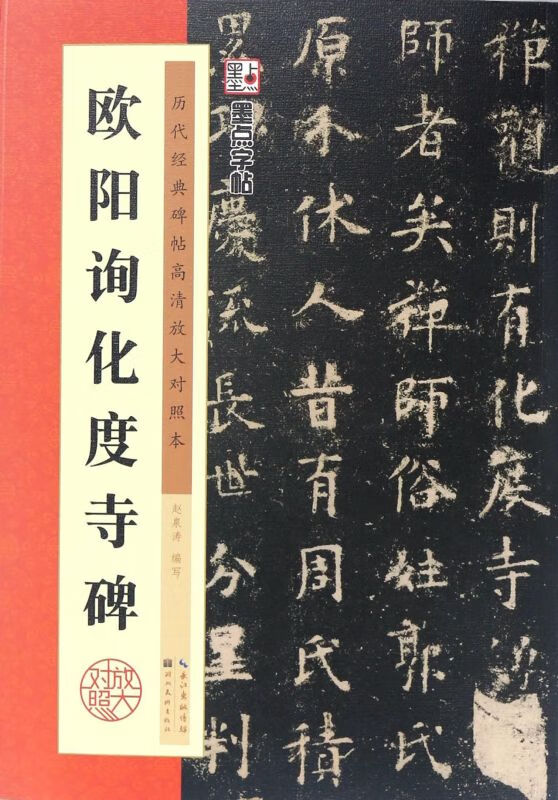 欧阳询化度寺碑
历代经典碑帖高清放大对照本
赵泉涛 编写
放大对照
长江出版传媒
湖北美术出版社
墨点
墨点字帖
觀則有化度寺
師者矣禪師俗姓郭氏
原介休人昔有周氏積
累功慶流長世分星判